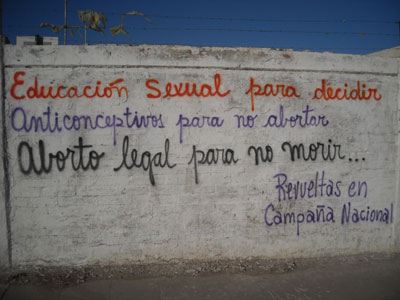 Educación Sexual para decidir
Anticonceptivos para no abortar
Aborto legal para no morir...
Revueltas en
Campaña Nacional